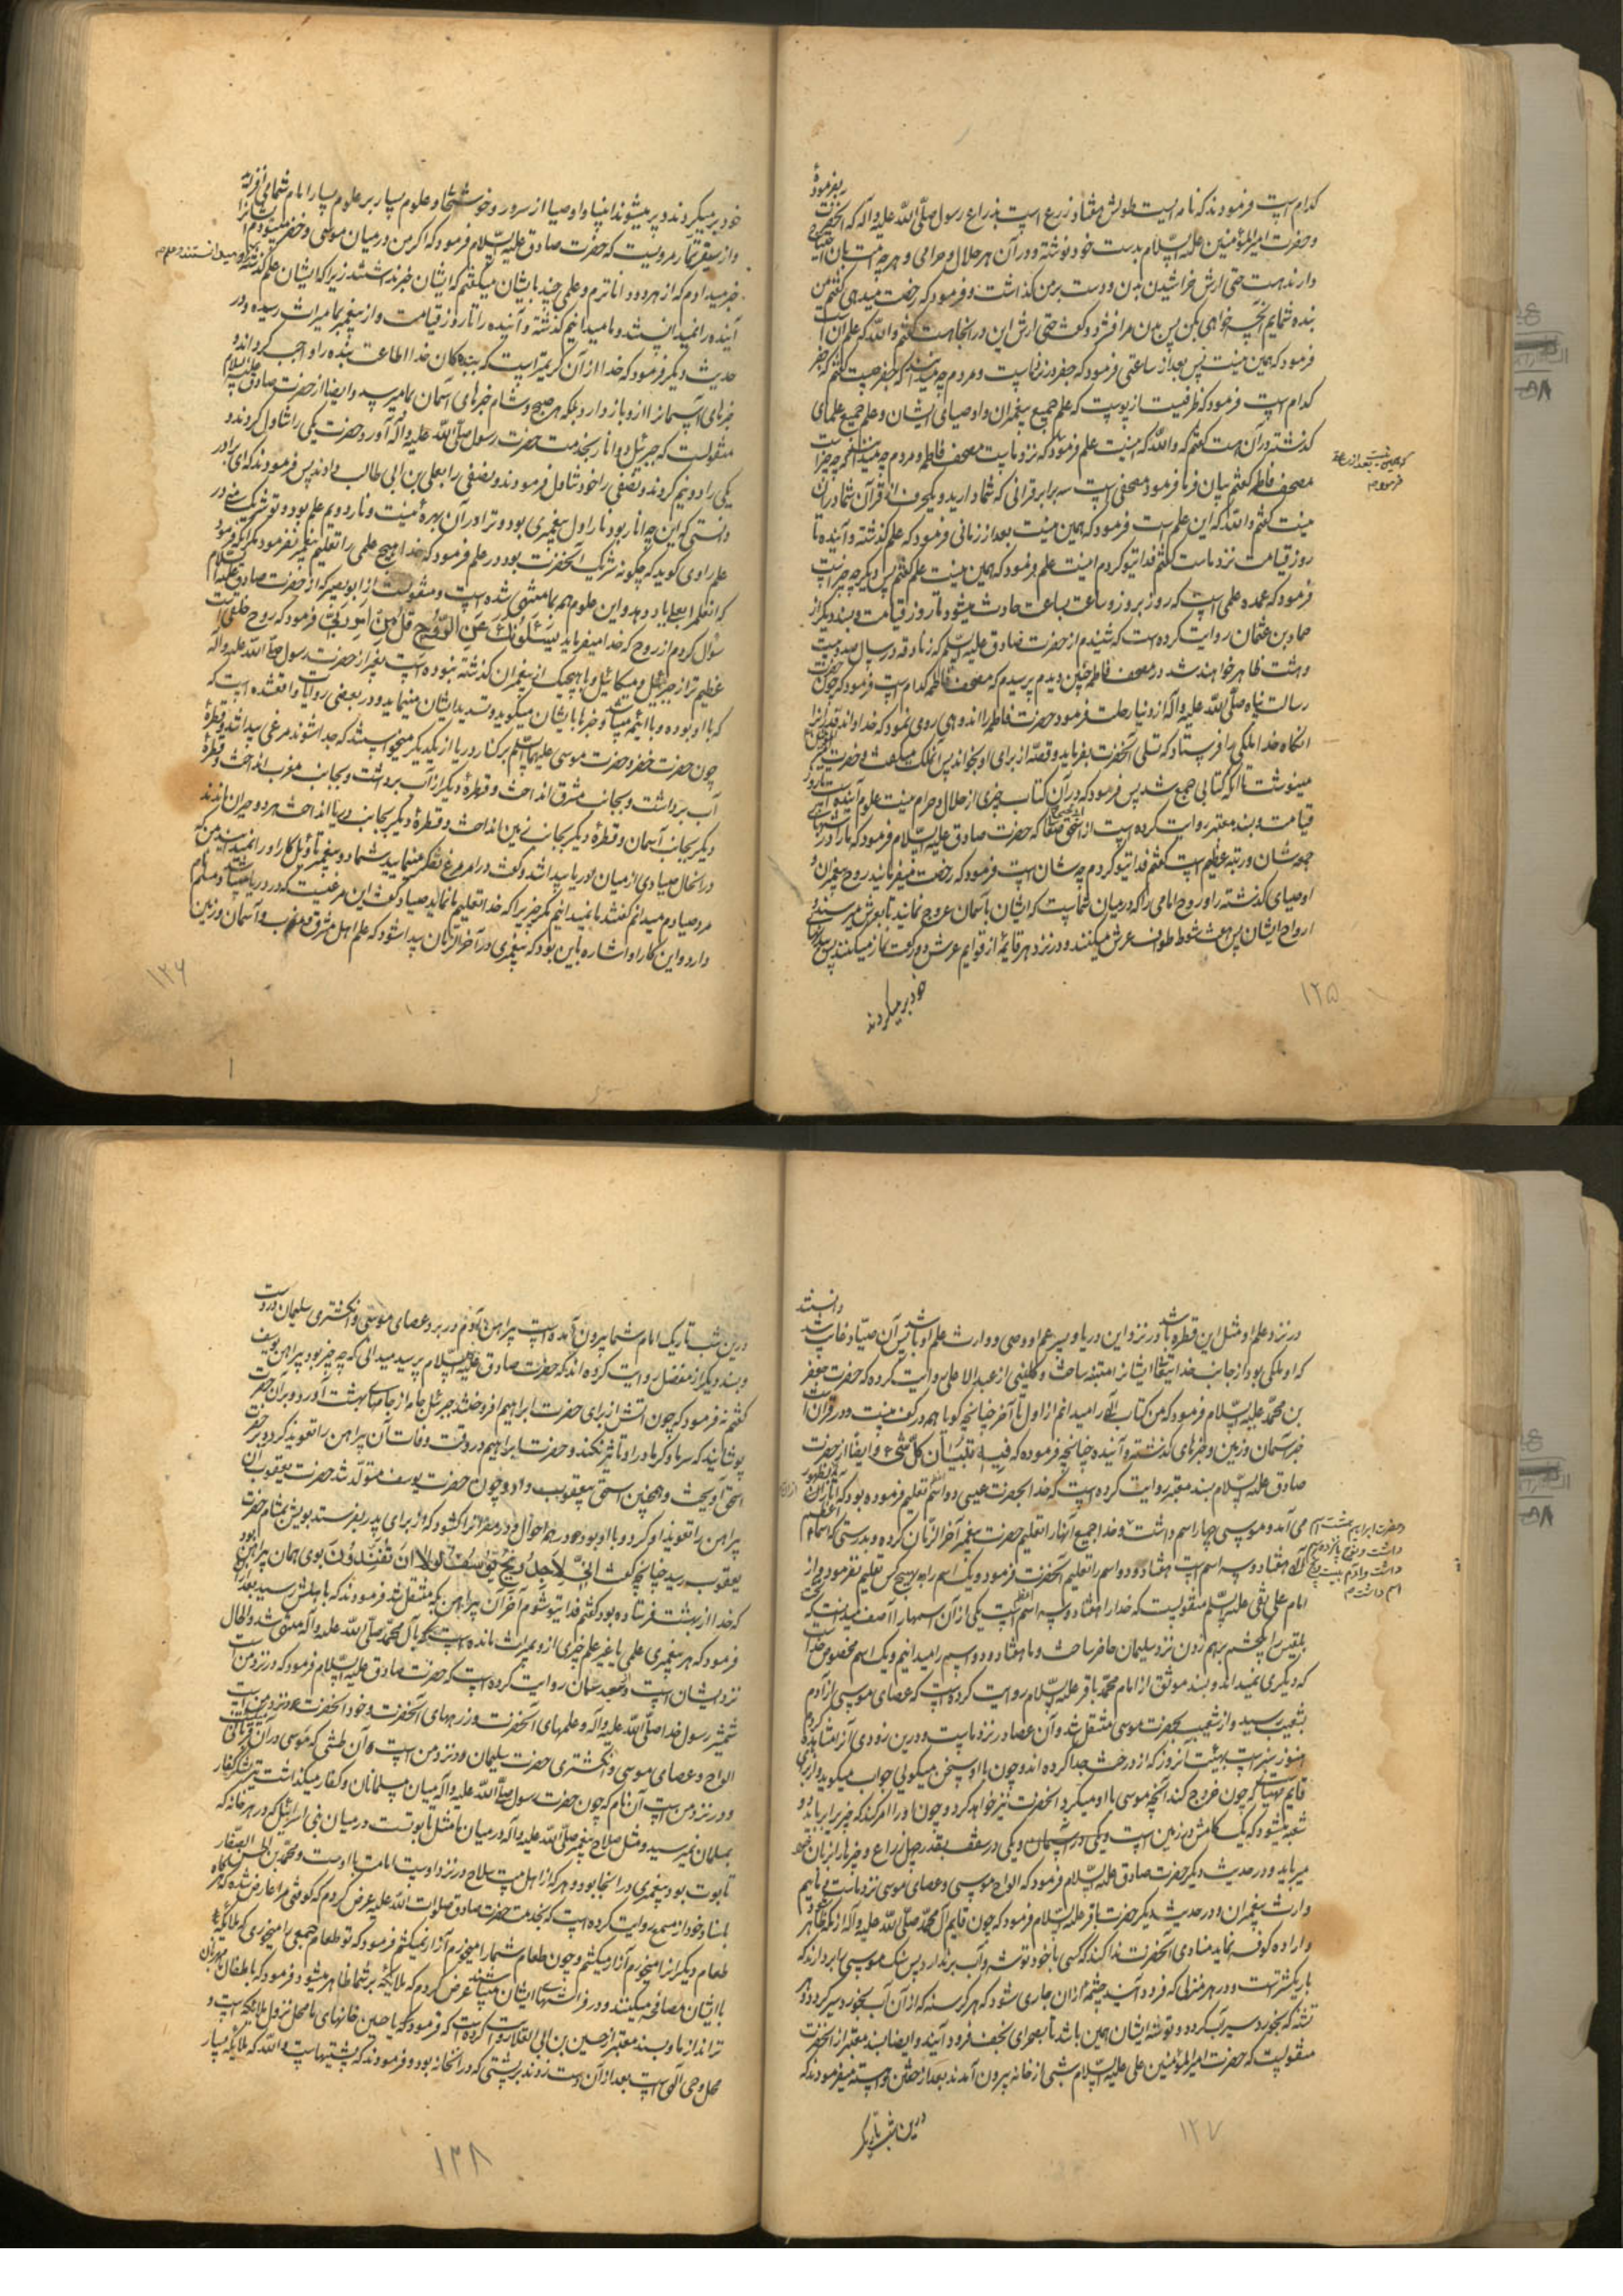 بفرمودهٔ
کدام است فرمودند که نامه ایست طولش هفتاد زرع است بذراع رسول صلی الله علیه و آله که آنحضرت
و حضرت امیرالمؤمنین علیه السلام بدست خود نوشته و در آن هر حلال و حرامی و هرچه امت بآن احتیاج
دارند هست حتی ارش خراشیدن بدن و دست بر من گذاشت و فرمود که رخصت میدهی گفتم من
بندهٔ شمایم آنچه خواهی بکن پس بدن مرا فشرد و گفت حتی ارش این در آنجا هست گفتم والله که علم آن است
فرمود که همین نیست پس بعد از ساعتی فرمود که جفر در نزد ماست و مردم چه میدانند که جفر چیست گفتم که جفر
کدام است فرمود که ظرفیست از پوست که علم جمیع پیغمبران و اوصیای ایشان و علم جمیع علمای
گذشته در آن هست گفتم که والله که اینست علم فرمود که نزد ماست مصحف فاطمه و مردم چه میدانند که چه چیز است
که همین نیست بعد از ساعتی فرمود م
مصحف فاطمه گفتم بیان فرما فرمود مصحفی است سه برابر قرآنی که شما دارید و یکحرف از قرآن شما در آن
نیست گفتم والله که این علم است فرمود که همین نیست بعد از زمانی فرمود که علم گذشته و آینده تا
روز قیامت نزد ماست گفتم فدای تو گردم اینست علم فرمود که همین نیست علم گفتم پس دیگر چه چیز است
فرمود که عمده علمی است که روز بروز و ساعت بساعت حادث میشود تا روز قیامت و بسند دیگر از
حماد بن عثمان روایت کرده است که شنیدم از حضرت صادق علیه السلام که زنادقه در سال صد و بیست
و هشت ظاهر خواهند شد در مصحف فاطمه چنین دیدم پرسیدم که مصحف فاطمه کدام است فرمود که چون حضرت
رسالت پناه صلی الله علیه و آله از دنیا رحلت فرمود حضرت فاطمه را اندوهی روی نمود که خدا داند قدر آنرا
آنگاه خدا ملکی را فرستاد که تسلی آنحضرت بفرماید و قصه از برای او بخواند پس آن ملک میگفت و حضرت امیر
مینوشت تا آنکه کتابی جمع شد پس فرمود که در آن کتاب چیزی از حلال و حرام نیست علوم آینده است تا روز
قیامت و بسند معتبر روایت کرده است از که حضرت صادق علیه السلام فرمود که ما را در شبهای
جمعه شان و رتبه عظیم است گفتم فدای تو گردم چه شان است فرمود که رخصت میفرمایند روح پیغمبران و
اوصیای گذشته را و روح امامی را که در میان شماست که ایشان بآسمان عروج نمایند تا بعرش میرسند و
ارواح ایشان پس هفت شوط طواف عرش میکنند و در نزد هر قایمهٔ از قوایم عرش دو رکعت نماز میکنند پس
خود برمیگردند
۱۲۵
خود برمیگردند و پر میشوند انبیا و اوصیا از سرور و خوشحالی و علوم بسیار بر علوم بسیار امام شما می افزاید
و از سیف تمار مرویست که حضرت صادق علیه السلام فرمود که اگر من در میان موسی و خضر میبودم ایشانرا
خبر میدادم که از هر دو داناترم و علمی چند بایشان میگفتم که ایشان خبر نداشتند زیرا که ایشان علم گذشته
آینده را نمیدانستند و ما میدانیم گذشته و آینده را تا روز قیامت و از پیغمبر بما میراث رسیده و در
حدیث دیگر فرمود که خدا از آن کریمتر است که بندگان خدا اطاعت بنده را واجب گرداند و
خبرهای آسمانرا از او باز دارد بلکه هر صبح و شام خبرهای آسمان بما میرسد و ایضا از حضرت صادق علیه السلام
منقولست که جبرئیل دو انار بخدمت حضرت رسول صلی الله علیه و آله آورد حضرت یکی را تناول کردند و
یکی را دو نیم کردند و نصفی را خود تناول فرمودند و نصفی را بعلی بن ابی طالب دادند پس فرمودند که ای برادر
دانستی که این چه انار بود انار اول پیغمبری بود و ترا در آن بهرهٔ نیست و نار دویم علم بود و تو شریک منی در
علم راوی گوید که چگونه شریک آنحضرت بود در علم فرمود که خدا هیچ علمی را تعلیم پیغمبر نفرمود مگر آنکه فرمود
که آنعلم را بعلی یاد دهد و این علوم هم بما منتهی شده است و منقولست از ابوبصیر که از حضرت صادق علیه السلام
سؤال کردم از روح که خدا میفرماید یَسْئَلُونَكَ عَنِ الرُّوحِ قُلِ الرُّوحُ مِنْ أَمْرِ رَبِّی فرمود که روح خلقی است
عظیم تر از جبرئیل و میکائیل و با هیچیک از پیغمبران گذشته نبوده است بغیر از حضرت رسول صلی الله علیه و آله
که با او بوده و با ائمه میباشد و خبرها بایشان میگوید و تسدید ایشان مینماید و در بعضی روایات واقعشده است که
چون حضرت خضر و حضرت موسی علیهما السلام بر کنار دریا از یکدیگر میخواستند که جدا شوند مرغی پیدا شد و قطرهٔ
آب برداشت و بجانب مشرق انداخت و قطرهٔ دیگر از آب برداشت و بجانب مغرب انداخت و قطرهٔ
دیگر بجانب آسمان و قطرهٔ دیگر بجانب زمین انداخت و قطرهٔ دیگر بجانب دریا انداخت هر دو حیران ماندند
در آنحال صیادی از میان دریا پیدا شد و گفت در امر مرغ تفکر مینمایید شما دو پیغمبر تأویل کار او را نمیدانید من که
مرد صیادم میدانم گفتند ما نمیدانیم مگر چیزیرا که خدا تعلیم ما نماید صیاد گفت این مرغیست که در دریا میباشد و مسلم نام
دارد و این کار او اشاره باین بود که پیغمبری در آخرالزمان پیدا شود که علم اهل مشرق و مغرب و آسمان و زمین
۱۲۶
در نزد علم او مثل این قطره باشد در نزد این دریا و پسر عم او وصی و وارث علم او باشد پس آن صیاد غایب شد دانستند
که او ملکی بود از جانب خدا تعالی ایشانرا متنبه ساخت و کلینی از عبدالاعلی روایت کرده که حضرت جعفر
بن محمد علیه السلام فرمود که من کتاب الهی را میدانم از اول تا آخر چنانچه گویا همه در کف منست و در قرآن است
خبر آسمان و زمین و خبرهای گذشته و آینده چنانچه فرموده که فِیهِ تِبْیَانُ كُلِّ شَیْءٍ و ایضا از حضرت
صادق علیه السلام بسند معتبر روایت کرده است که خدا بحضرت عیسی دو اسم تعلیم فرموده بود که آثار از آن بظهور
می آمد و موسی چهار اسم داشت و خدا جمیع آنها را تعلیم حضرت پیغمبر آخرالزمان کرده و بدرستی که اسماء اعظم
و حضرت ابراهیم هشت اسم داشت و نوح پانزده اسم داشت و آدم بیست و پنج اسم داشت م
الهی هفتاد و سه اسم است هفتاد و دو اسم را تعلیم آنحضرت فرمود و یک اسم را به هیچ کس تعلیم نفرمود و از
امام علی نقی علیه السلام منقولست که خدا را هفتاد و سه اسم اعظم است یکی از آن اسمها را آصف میدانست که تخت
بلقیس را بچشم برهم زدن نزد سلیمان حاضر ساخت و ما هفتاد و دو اسم را میدانیم و یک اسم مخصوص خدا است
که دیگری نمیداند و بسند موثق از امام محمد باقر علیه السلام روایت کرده است که عصای موسی از آدم
بشعیب رسید و از شعیب بحضرت موسی منتقل شد و آن عصا در نزد ماست و در این زودی آنرا مشاهده کردم
هنوز سبز است بهیئت آنروز که از درخت جدا کرده اند و چون با او سخن میگوئی جواب میگوید و از برای
قایم مهیاست که چون خروج کند آنچه موسی با او میکرد آنحضرت نیز خواهد کرد و چون او را امر کند که چیزی برباید دو
شعبه میشود که یک کامش در زمین است و یکی در آسمان و یکی در سقف بقدر چهل زراع و چیزها را بزبان خود
میرباید و در حدیث دیگر حضرت صادق علیه السلام فرمود که الواح موسی و عصای موسی نزد ماست و مائیم
وارث پیغمبران و در حدیث دیگر حضرت باقر علیه السلام فرمود که چون قایم آل محمد صلی الله علیه و آله از مکه ظاهر شود
و ارادهٔ کوفه نماید منادی آنحضرت ندا کند که کسی با خود توشه و آب برندارد پس سنگ موسی را بردارند که
بار یکشتر است و در هر منزلی که فرود آیند چشمهٔ از آن جاری شود که هر گرسنه که از آن آب بخورد سیر گردد و هر
تشنه که بخورد سیراب گردد و توشهٔ ایشان همین باشد تا بصحرای نجف فرود آیند و ایضا بسند معتبر از آنحضرت
منقولست که حضرت امیرالمؤمنین علی علیه السلام شبی از خانه بیرون آمدند بعد از خفتن و آهسته میفرمودند که
درین شب تاریک
۱۲۷
درین شب تاریک امام شما بیرون آمده است پیراهن آدم در بر و عصای موسی و انگشتری سلیمان در دست
و بسند دیگر از مفضل روایت کرده اند که حضرت صادق علیه السلام پرسید میدانی که چه چیز بود پیراهن یوسف
گفتم نه فرمود که چون آتش از برای حضرت ابراهیم افروختند جبرئیل جامه از جامهای بهشت آورد و بر آن حضرت
پوشانید که سرما و گرما در او تاثیر نکند و حضرت ابراهیم در وقت وفات آن پیراهن را تعویذ کرد و بر حضرت
اسحق آویخت و همچنین اسحق بیعقوب داد و چون حضرت یوسف متولد شد حضرت یعقوب آن
پیراهن را تعویذ او کرد و با او بود در همه احوال و در مصر آنرا گشود که از برای پدر بفرستد بویش بمشام حضرت
یعقوب رسید چنانچه گفت إِنِّی لَأَجِدُ رِیحَ یُوسُفَ لَوْلَا أَنْ تُفَنِّدُونِ بوی همان پیراهن بود
که خدا از بهشت فرستاده بود گفتم فدای تو شوم آخر آن پیراهن بکه منتقل شد فرمودند که باهلش رسید بعد از آن
فرمود که هر پیغمبری علمی یا غیر علم چیزی از او بمیراث مانده است بآل محمد صلی الله علیه و آله منتقل شد والحال
نزد ایشان است و سعید سمان روایت کرده است که حضرت صادق علیه السلام فرمود که در نزد من است
شمشیر رسول خدا صلی الله علیه و آله و علمهای آنحضرت و زرههای آنحضرت و خود آنحضرت و نزد من است
الواح و عصای موسی و انگشتری حضرت سلیمان و در نزد من است آن طشتی که موسی در آن قربانی
و در نزد من است آن نام که چون حضرت رسول صلی الله علیه و آله میان مسلمانان و کفار میگذاشت تیر لشگر کفار
بمسلمانان نمیرسید و مثل صلاح پیغمبر صلی الله علیه و آله در میان ما مثل تابوتست در میان بنی اسرائیل که در هر خانه که
تابوت بود پیغمبری در آنجا بود و هر که از اهل بیت سلاح در نزد اوست امامت با اوست و محمد بن الحسن الصفار
باسناد خود از مسمع روایت کرده است که بخدمت حضرت صادق صلوات الله علیه عرض کردم که کوفتی مرا عارض شده که هرگاه
طعام دیگرانرا میخورم آزار میکشم و چون طعام شما را میخورم آزار نمیکشم فرمود که تو طعام جمعی را میخوری که ملائکه
با ایشان مصافحه میکنند و در فراشهای ایشان میباشند عرض کردم که ملائکه بر شما ظاهر میشود فرمود که باطفال ما مهربان
تراند از ما و بسند معتبر از حسین بن ابی العلا روایت کرده است که فرمود که یا حسین خانهای ما محل نزول ملائکه است و
محل وحی الهی است بعد از آن دست زدند بر پشتی که در آنخانه بود و فرمودند که پشتیهاست والله که ملائکه بسیار
۱۲۸